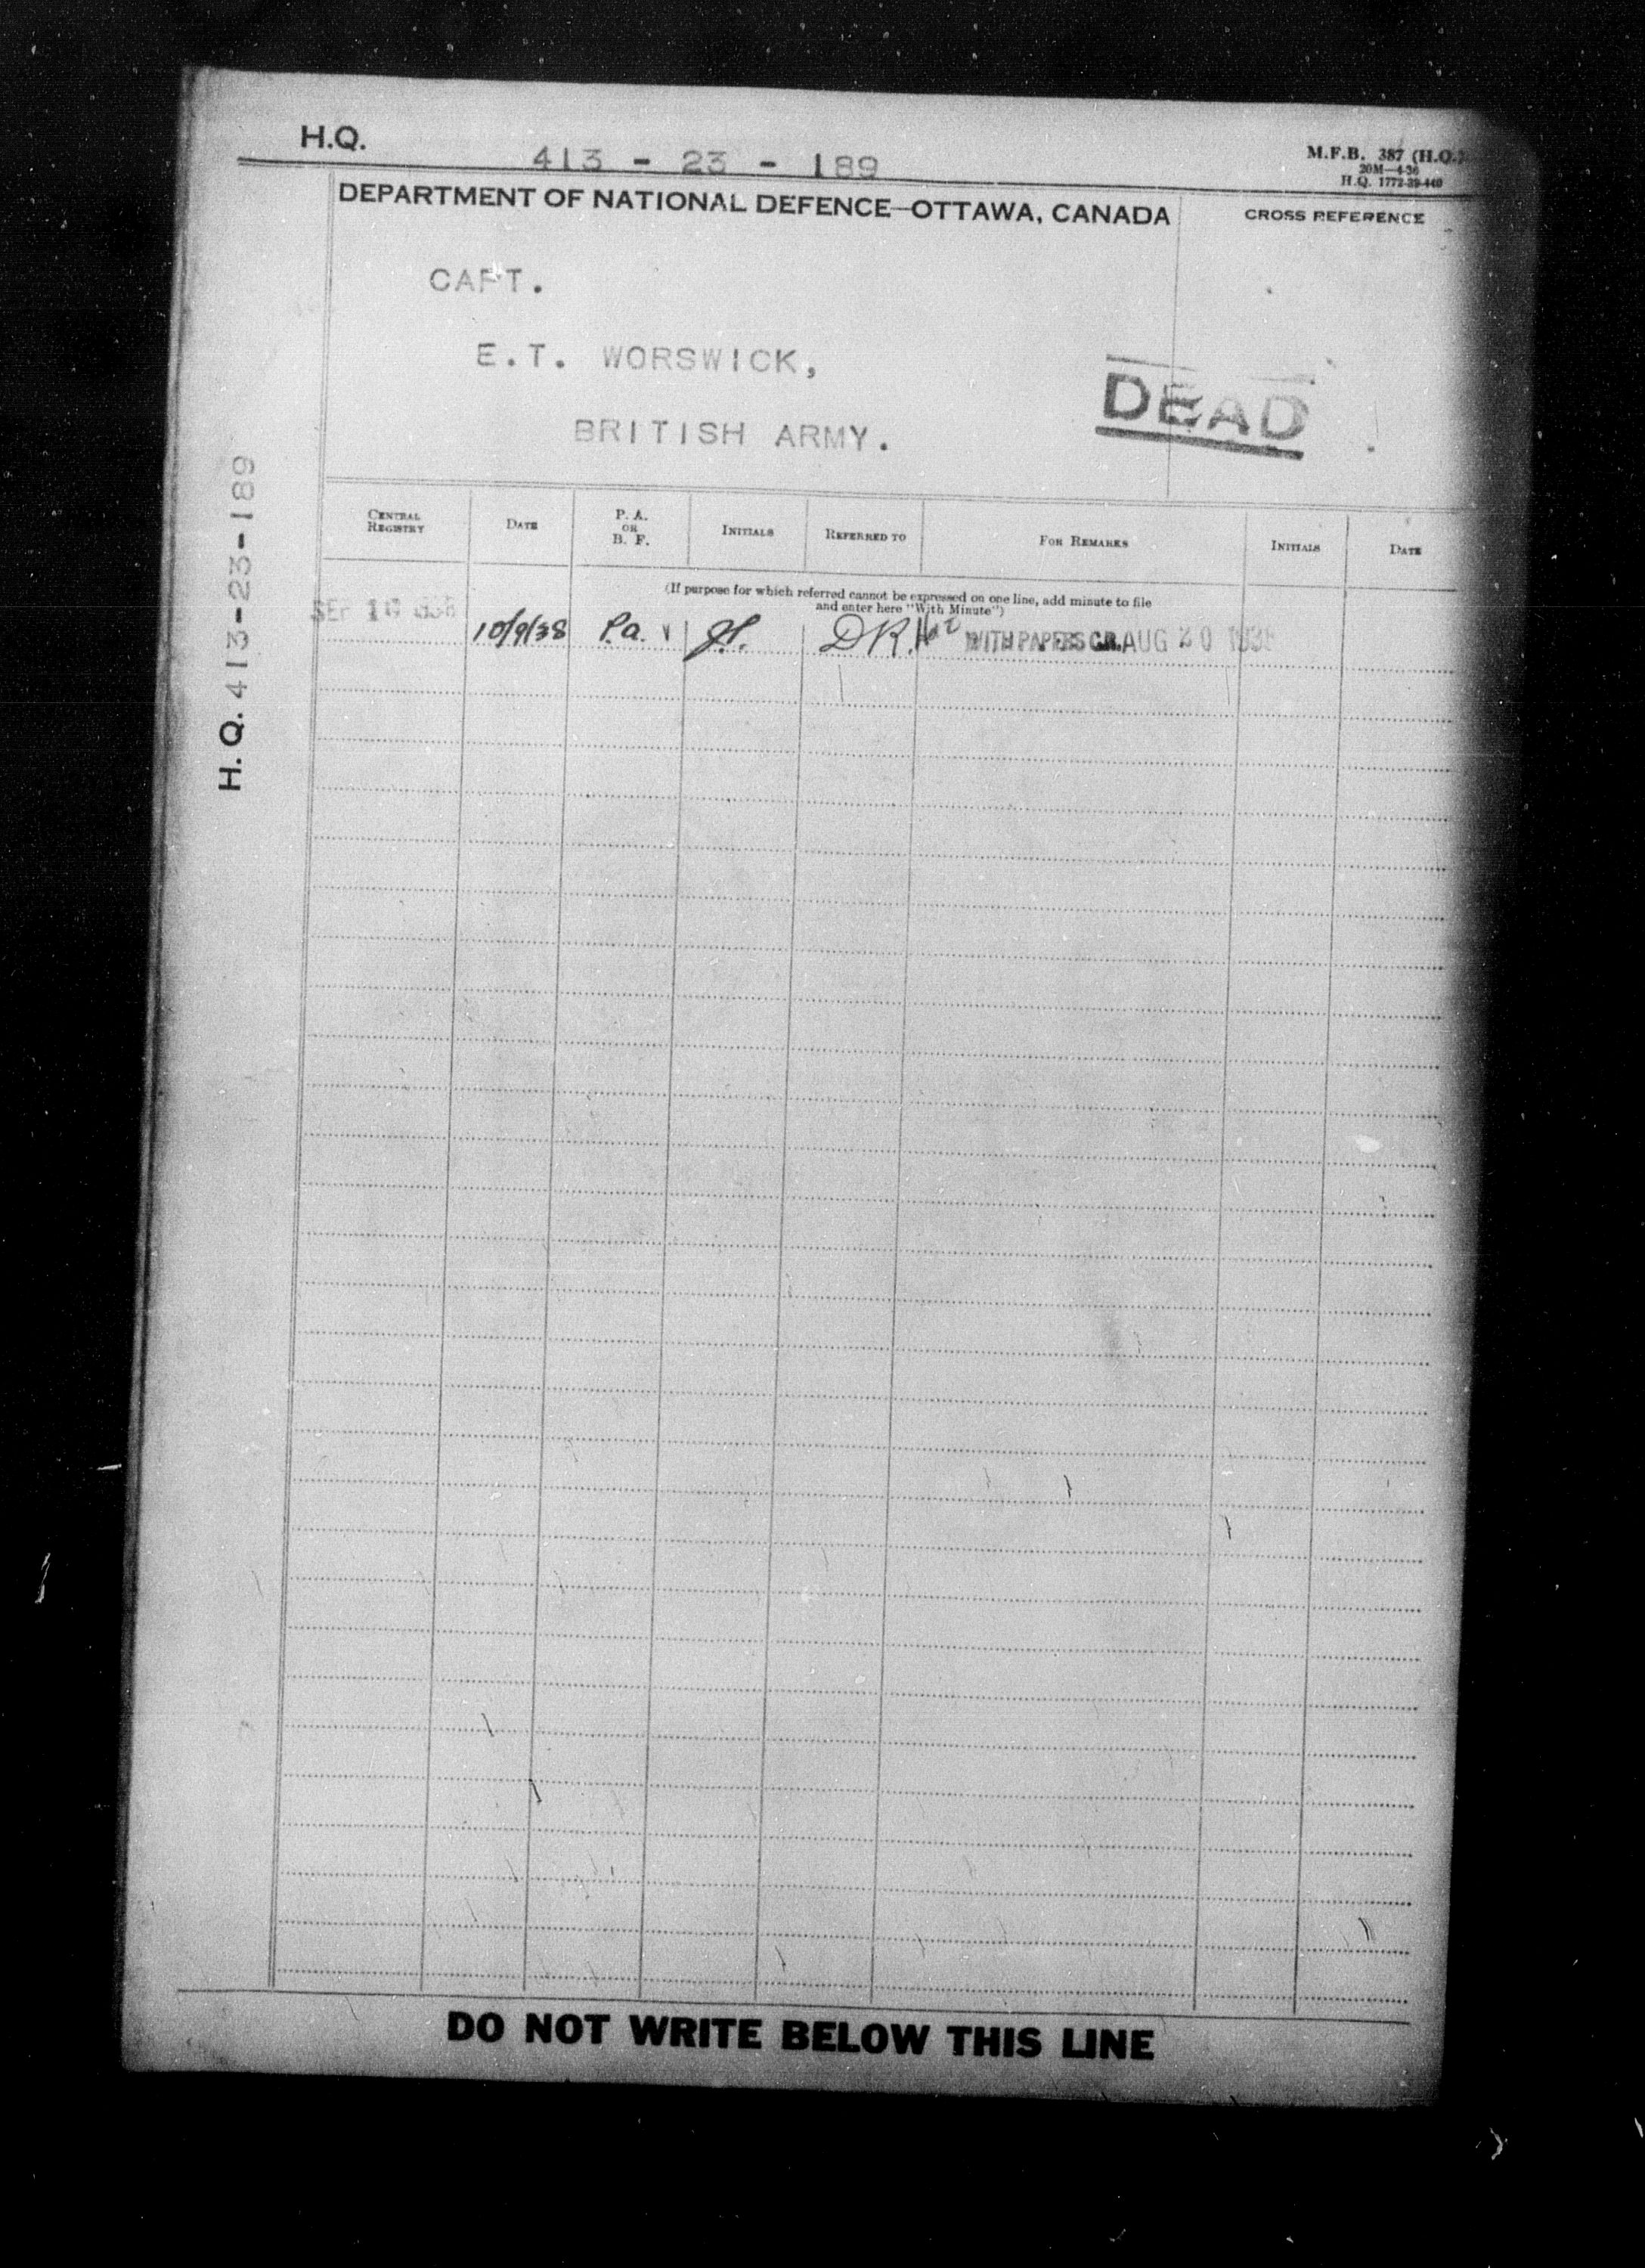 H.Q. 413 - 23 - 189
M.F.B. 387 (H.Q.)
20M—4-36
H.Q. 1772-39-440
DEPARTMENT OF NATIONAL DEFENCE—OTTAWA, CANADA
CROSS REFERENCE
CAPT.
E.T. WORSWICK,
BRITISH ARMY.
DEAD
H.Q. 413-23-189
CENTRAL REGISTRY
DATE
P. A. OR B. F.
INITIALS
REFERRED TO
FOR REMARKS
INITIALS
DATE
(If purpose for which referred cannot be expressed on one line, add minute to file
and enter here "With Minute")
SEP 10 1938
10/9/38 P.a. D.R. WITH PAPERS C.R. AUG 30 1938
DO NOT WRITE BELOW THIS LINE